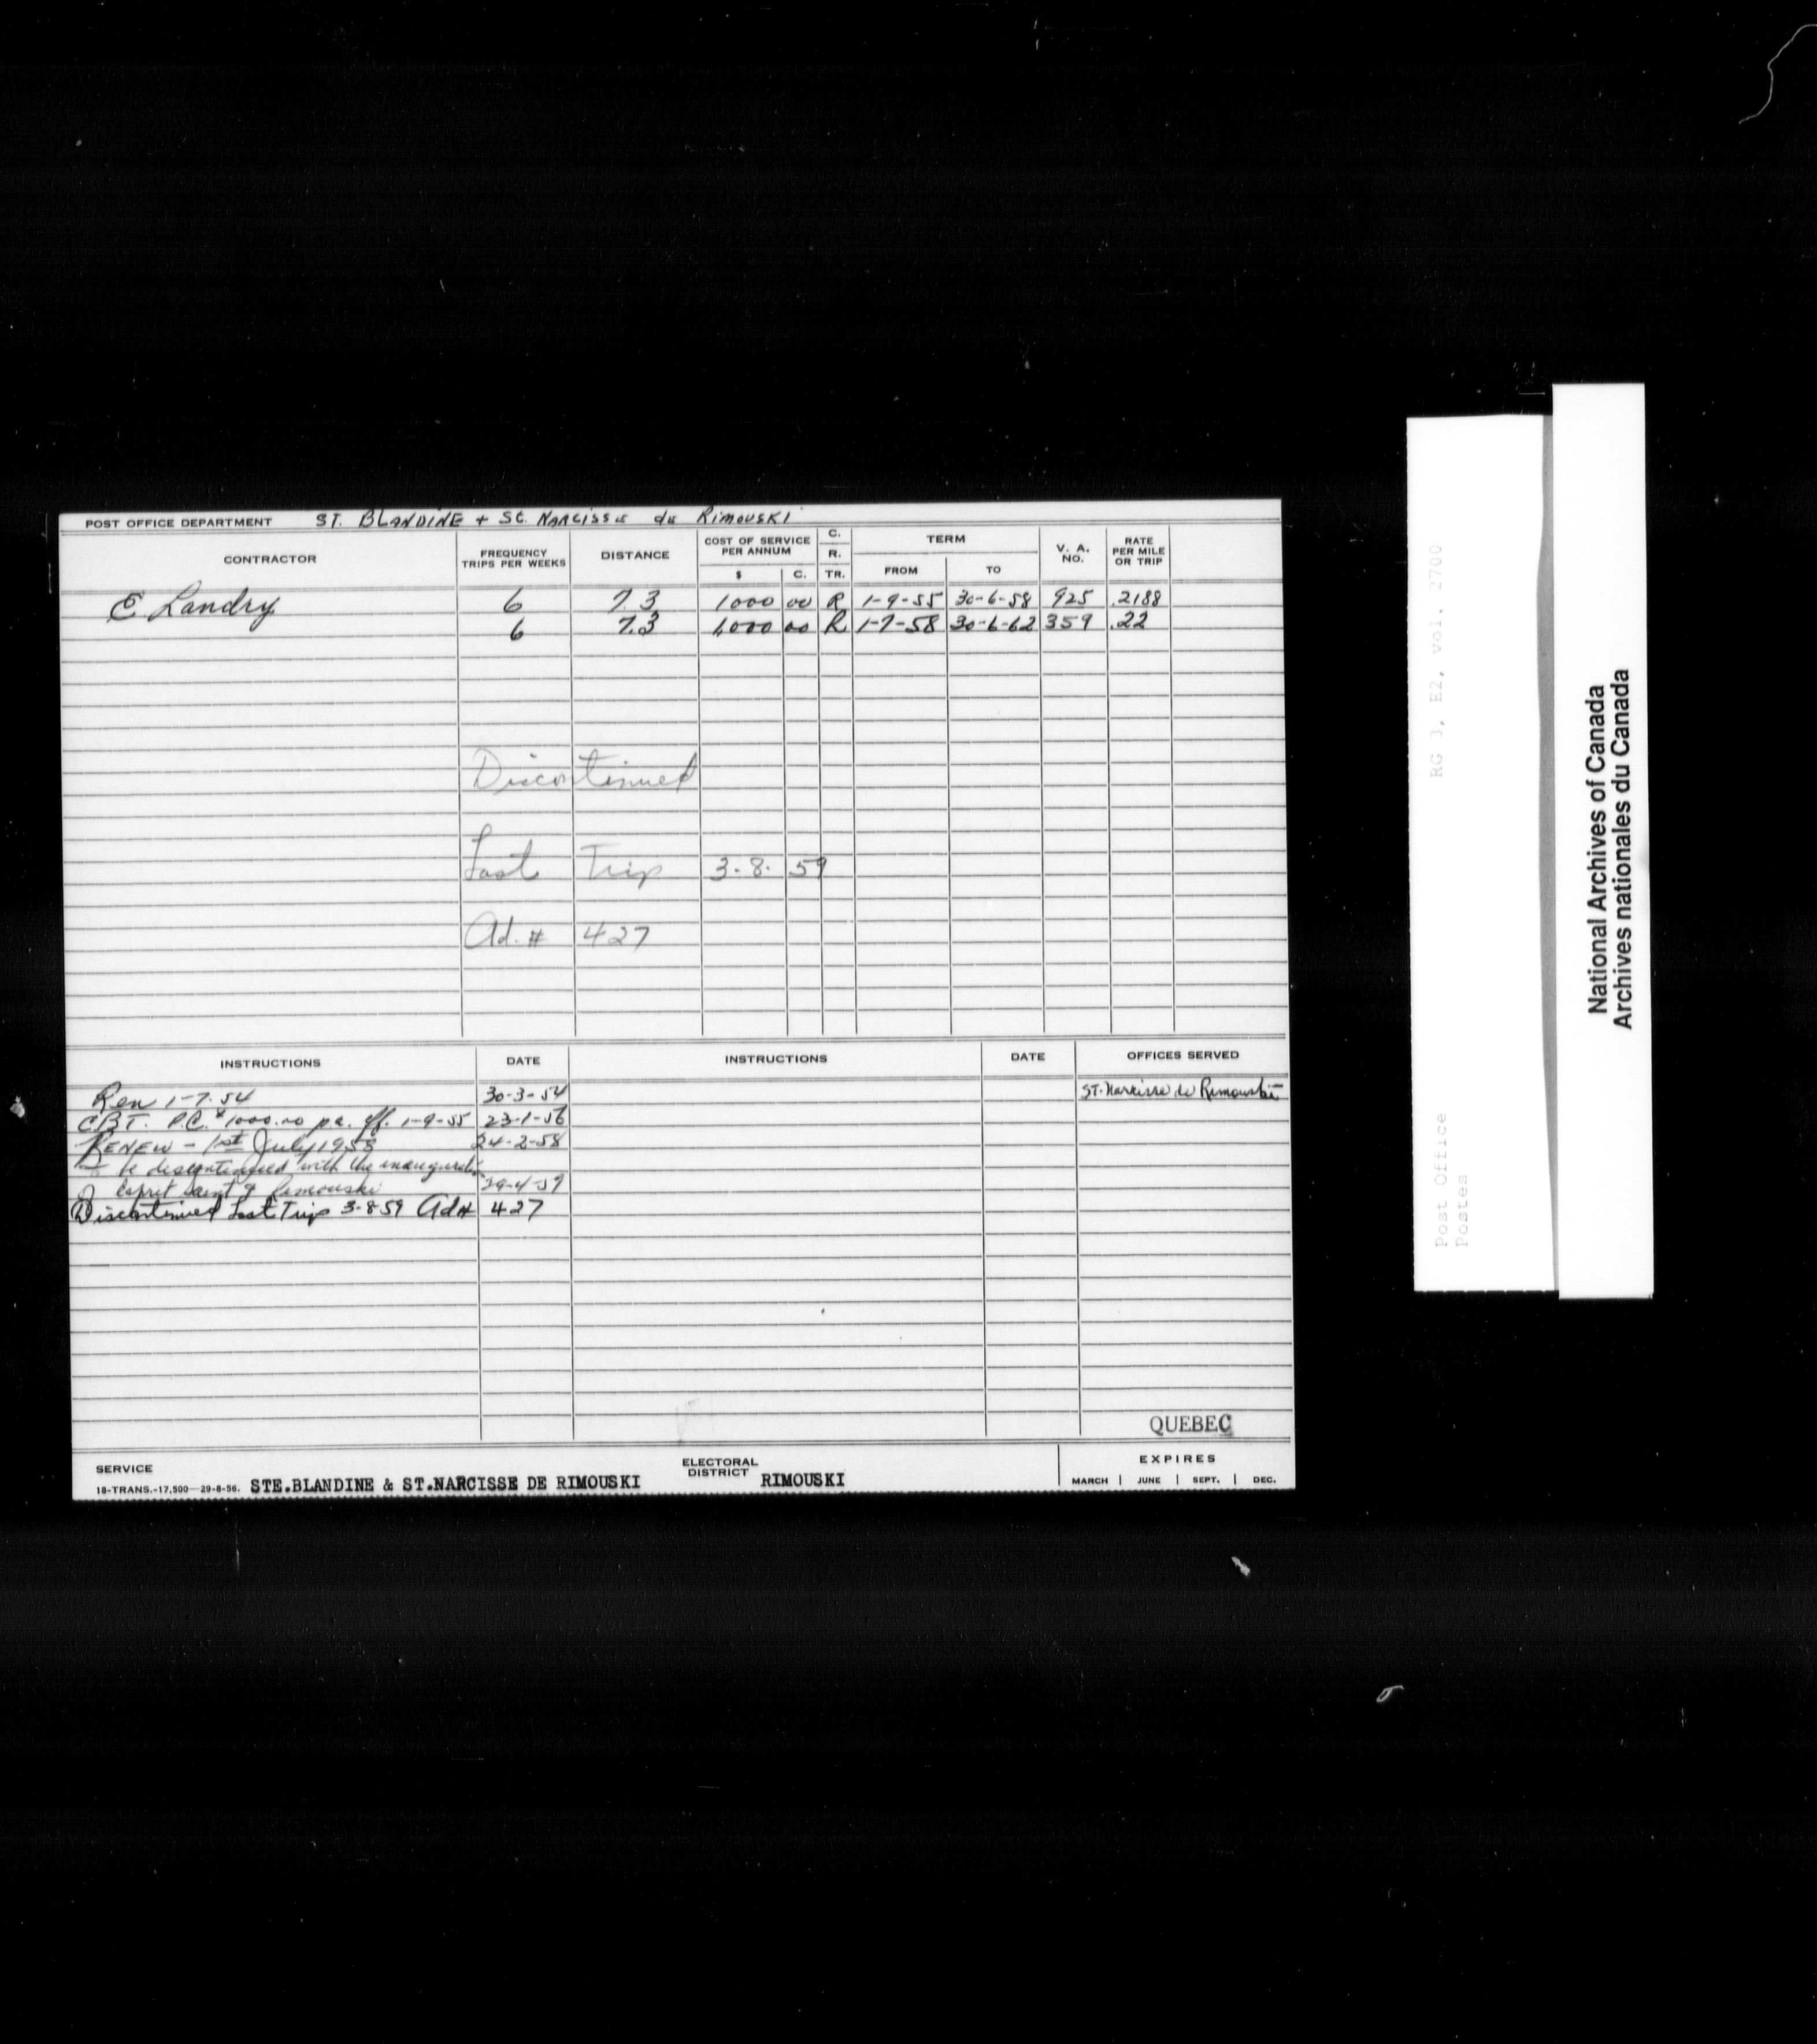 POST OFFICE DEPARTMENT ST. BLANDINE + ST. NARCISSE de RIMOUSKI
CONTRACTOR FREQUENCY TRIPS PER WEEKS DISTANCE COST OF SERVICE PER ANNUM $ C. C. R. TR. TERM FROM TO V. A. NO. RATE PER MILE OR TRIP
E. Landry 6 7.3 1000 00 R 1-9-55 30-6-58 925 .2188
6 7.3 1000 00 R 1-7-58 30-6-62 359 .22
Discontinued
Last Trip 3-8-59
Ad. # 427
INSTRUCTIONS DATE INSTRUCTIONS DATE OFFICES SERVED
Ren 1-7-54 30-3-54 ST. Narcisse de Rimouski
CBT. P.C. $1000.00 pa. eff. 1-9-55 23-1-56
RENEW - 1st July 1958 24-2-58
To be discontinued with the inauguration
of Esprit Saint & Rimouski 29-4-59
Discontinued Last Trip 3-8-59 Ad# 427
QUEBEC
SERVICE STE.BLANDINE & ST.NARCISSE DE RIMOUSKI ELECTORAL DISTRICT RIMOUSKI EXPIRES
18-TRANS.-17,500—29-8-56. MARCH | JUNE | SEPT. | DEC.
Post Office RG 3, E2, vol. 2700
Postes
National Archives of Canada
Archives nationales du Canada